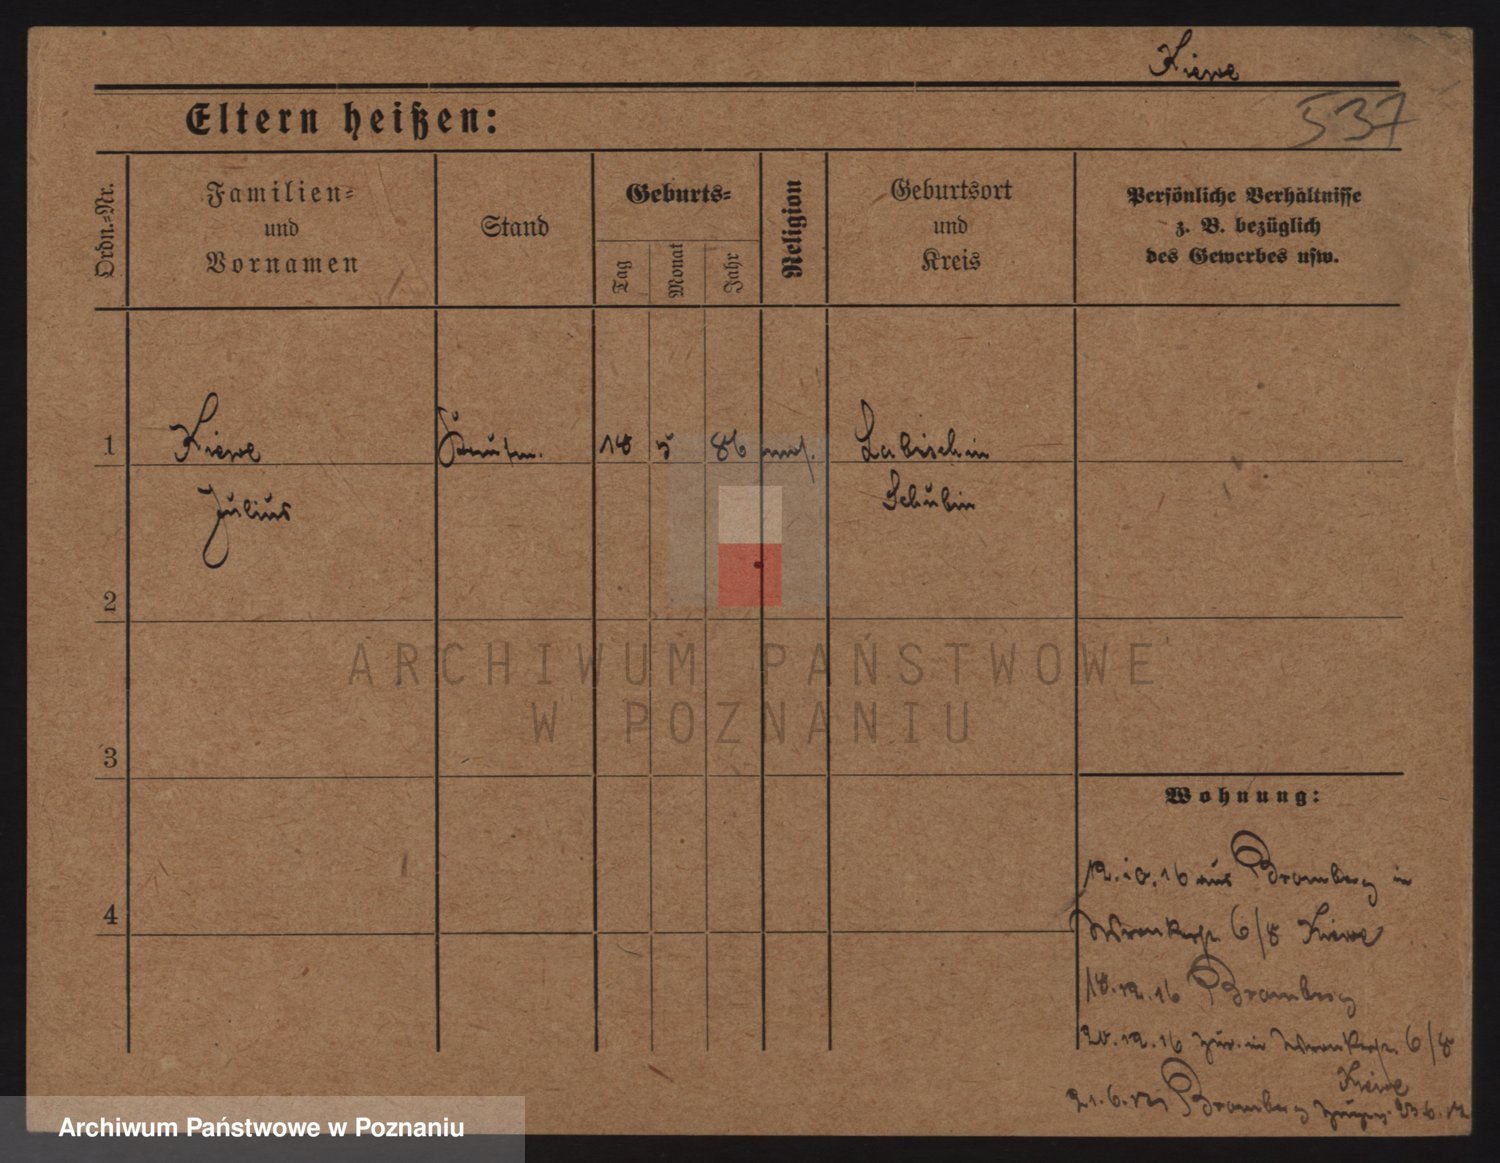 Kiewe
537
Eltern heißen:
Ordn.=Nr.
Familien=
und
Vornamen
Stand
Geburts=
Tag
Monat
Jahr
Religion
Geburtsort
und
Kreis
Persönliche Verhältnisse
z. B. bezüglich
des Gewerbes usw.
1
Kiewe
Kaufm.
18
5
86
mos.
Labischin
Julius
Schubin
2
ARCHIWUM PAŃSTWOWE
W POZNANIU
3
Wohnung:
12.10.16 aus Bromberg in
6/8 Kiewe
4
18.12.16 Bromberg
20.12.16 zur. in 6/8
Kiewe
21.6.17 Bromberg
Archiwum Państwowe w Poznaniu